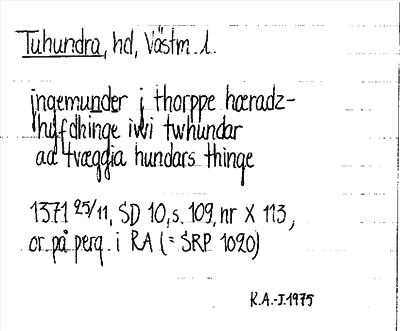 Tuhundra, hd, Västm. l.
jngemunder j thorppe hæradz-
høfdhinge iwi twhundar
aa tvæggia hundars thinge
1371 25/11, SD 10, s. 109, nr X 113,
or på perg. i RA (= SRP 1020)
K.A.-J. 1975